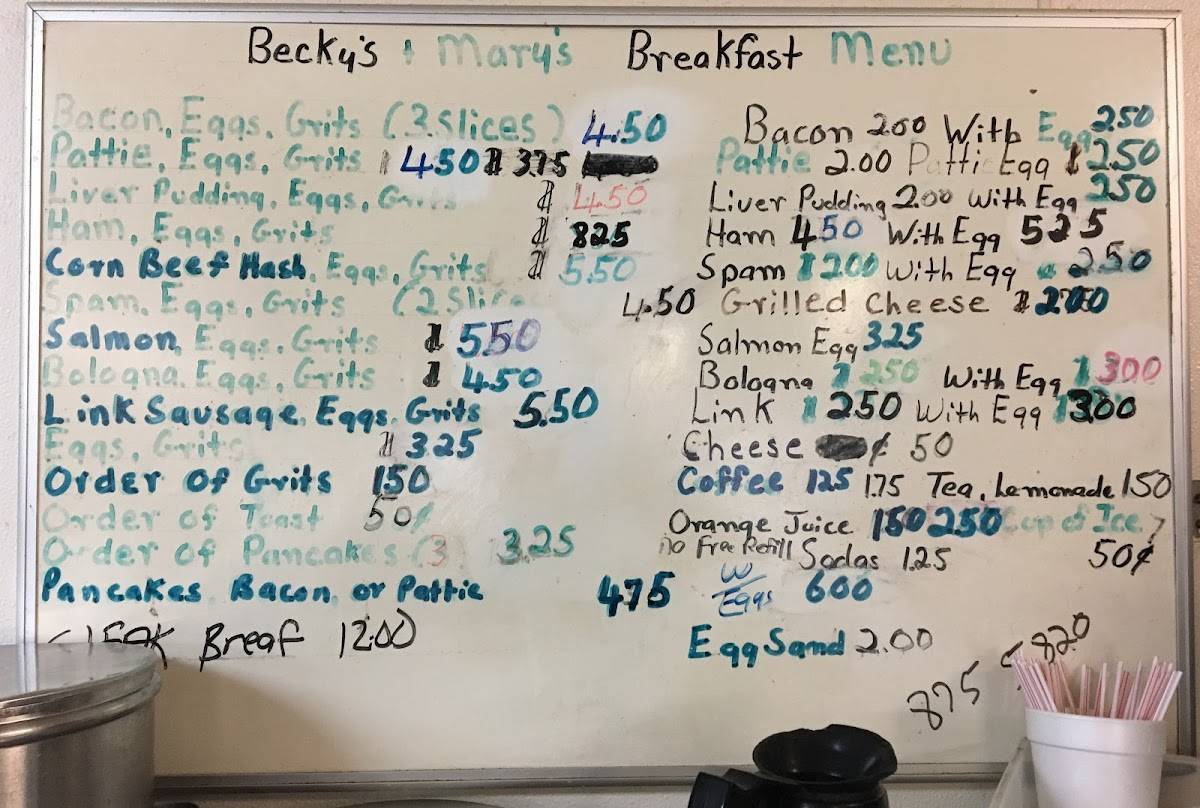 Becky's + Mary's Breakfast Menu
Bacon, Eggs, Grits (3 Slices) 4.50
Pattie, Eggs, Grits 450 375
Liver Pudding, Eggs, Grits 4.50
Ham, Eggs, Grits 825
Corn Beef Hash, Eggs, Grits 5.50
Spam, Eggs, Grits (2 Slice 4.50
Salmon, Eggs, Grits 550
Bologna, Eggs, Grits 4.50
Link Sausage, Eggs, Grits 5.50
Eggs, Grits 325
Order Of Grits 150
Order of Toast 50¢
Order of Pancakes (3) 3.25
Pancakes Bacon or Pattie 475
Breaf 12.00
Bacon 200 With Egg 250
Pattie 2.00 Patti Egg 250
Liver Pudding 200 with Egg 250
Ham 450 With Egg 525
Spam 200 With Egg 250
Grilled Cheese 200
Salmon Egg 325
Bologna 250 With Egg 300
Link 250 With Egg 300
Cheese ¢ 50
Coffee 125 175 Tea, Lemonade 150
Orange Juice 150 250 Cup of Ice
No Free Refill Sodas 1.25 50¢
W/Eggs 600
Egg Sand 2.00
875 820